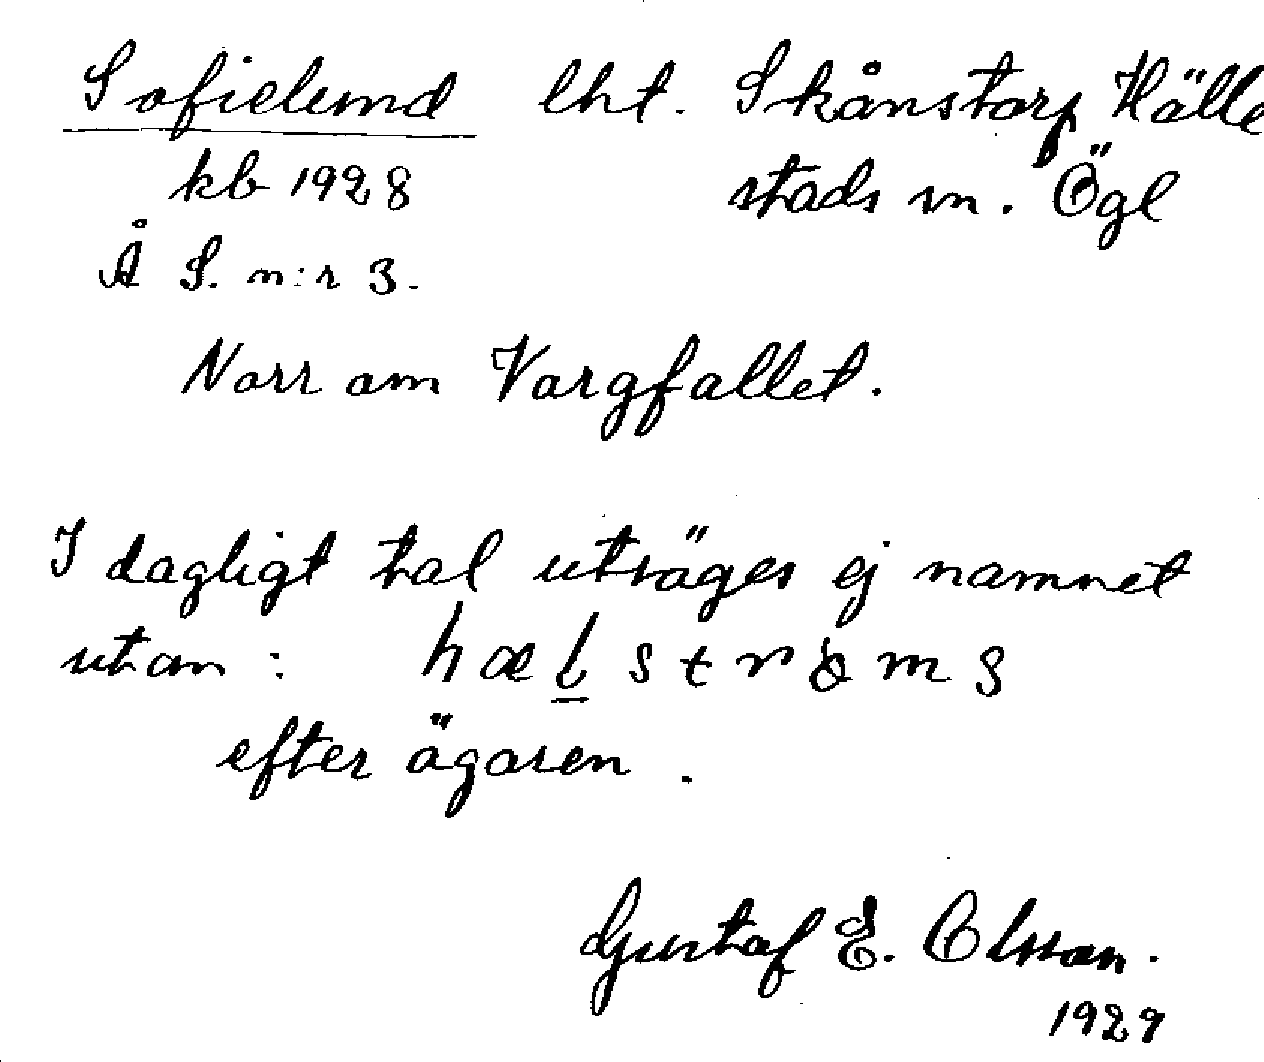 Sofielund lht. Skånstorp Hälle
kb 1928 stads sn. Ögl
Å S. n:r 3.
Norr om Vargfallet.
I dagligt tal utsäges ej namnet
utan: hælströms
efter ägaren.
Gustaf E. Olsson.
1929